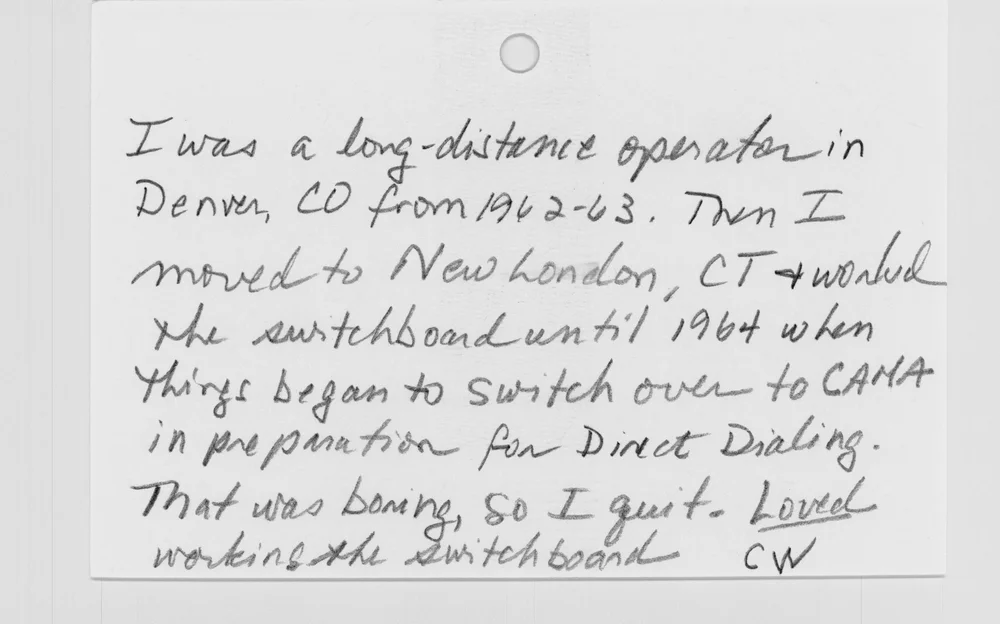 I was a long-distance operator in
Denver, CO from 1962-63. Then I
moved to New London, CT & worked
the switchboard until 1964 when
things began to switch over to CAMA
in preparation for Direct Dialing.
That was boring, so I quit. Loved
working the switchboard CW